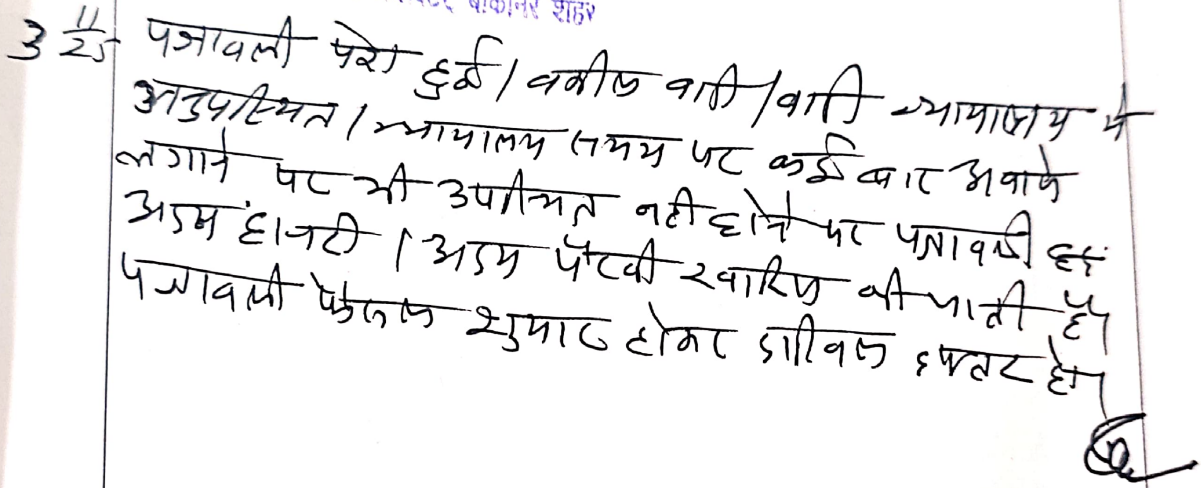 बीकानेर शहर
3 11/25 पत्रावली पेश हुई। वकील वादी/वादी न्यायालय में
अनुपस्थित। न्यायालय समय पर कई बार अवाजे
लगाने पर भी उपस्थित नही होने पर पत्रावली
अदम हाजरी / अदम पैरवी खारिज की जाती है।
पत्रावली फैसल शुमार होकर दाखिल दफ्तर हो।